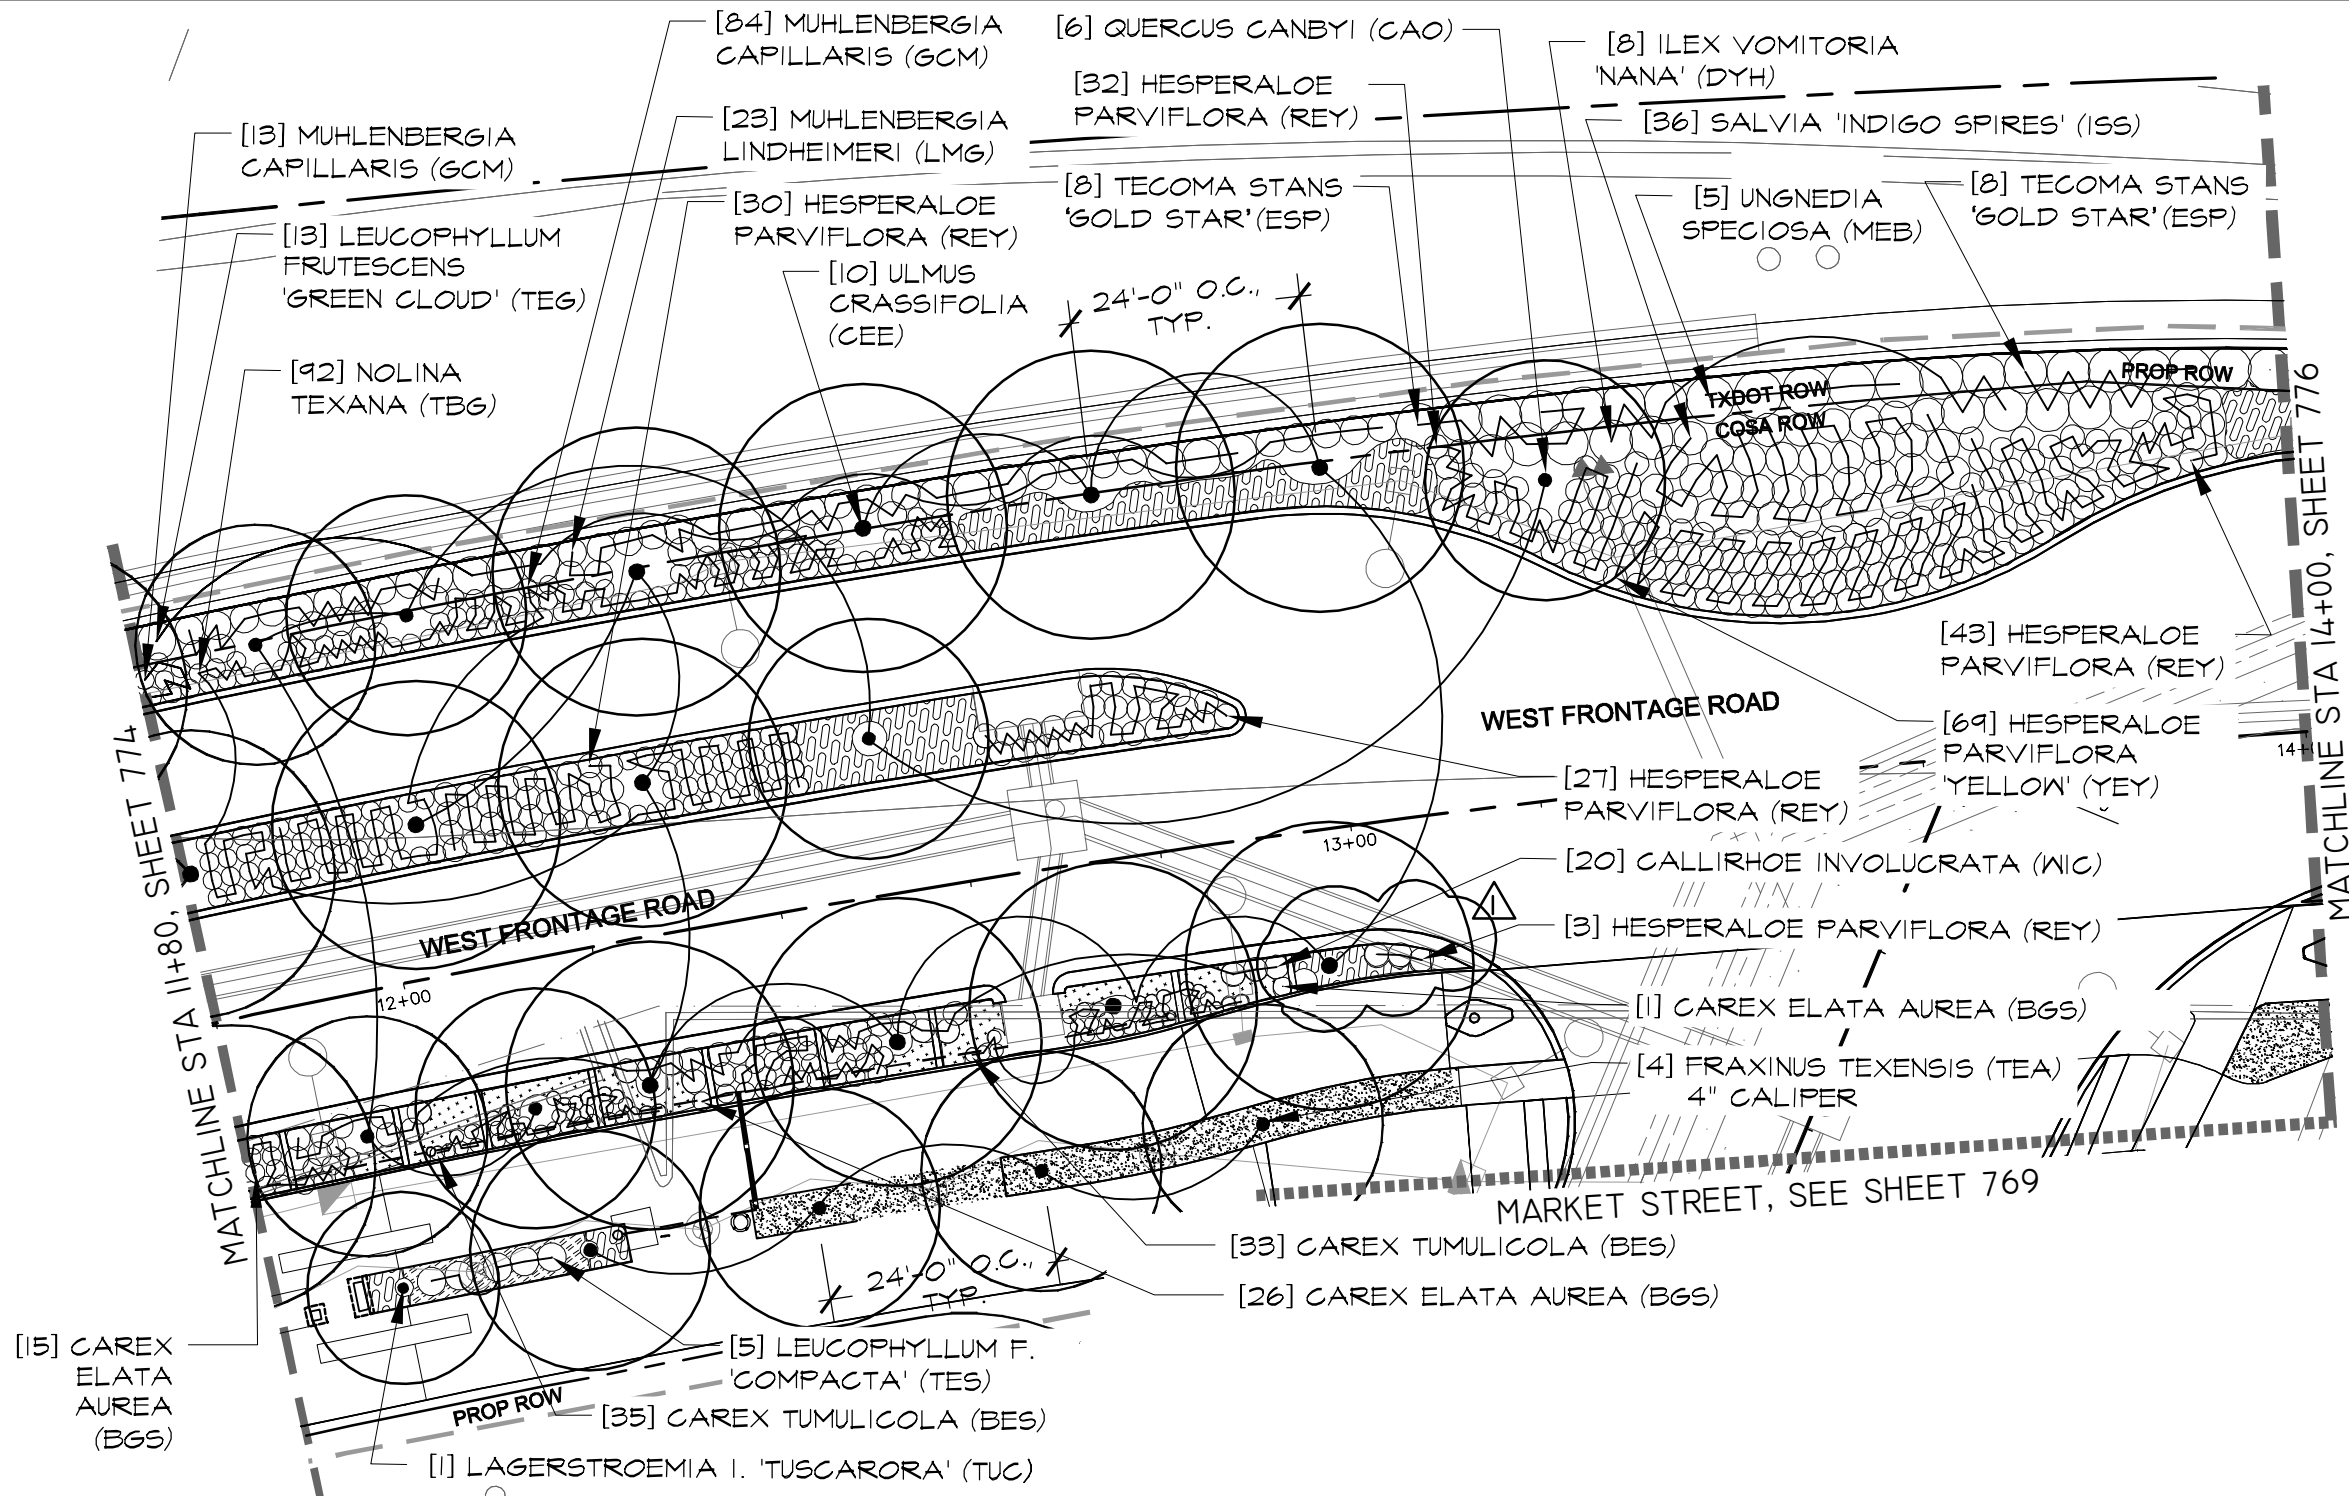 [84] MUHLENBERGIA
CAPILLARIS (GCM)
[6] QUERCUS CANBYI (CAO)
[8] ILEX VOMITORIA
'NANA' (DYH)
[32] HESPERALOE
PARVIFLORA (REY)
[13] MUHLENBERGIA
CAPILLARIS (GCM)
[23] MUHLENBERGIA
LINDHEIMERI (LMG)
[36] SALVIA 'INDIGO SPIRES' (ISS)
[8] TECOMA STANS
'GOLD STAR' (ESP)
[5] UNGNEDIA
SPECIOSA (MEB)
[8] TECOMA STANS
'GOLD STAR' (ESP)
[30] HESPERALOE
PARVIFLORA (REY)
[13] LEUCOPHYLLUM
FRUTESCENS
'GREEN CLOUD' (TEG)
[10] ULMUS
CRASSIFOLIA
(CEE)
24'-0" O.C.,
TYP.
[92] NOLINA
TEXANA (TBG)
PROP ROW
TXDOT ROW
COSA ROW
MATCHLINE STA 14+00, SHEET 776
[43] HESPERALOE
PARVIFLORA (REY)
WEST FRONTAGE ROAD
[69] HESPERALOE
PARVIFLORA
'YELLOW' (YEY)
[27] HESPERALOE
PARVIFLORA (REY)
13+00
[20] CALLIRHOE INVOLUCRATA (WIC)
1
[3] HESPERALOE PARVIFLORA (REY)
WEST FRONTAGE ROAD
12+00
MATCHLINE STA 11+80, SHEET 774
[1] CAREX ELATA AUREA (BGS)
[4] FRAXINUS TEXENSIS (TEA)
4" CALIPER
MARKET STREET, SEE SHEET 769
[33] CAREX TUMULICOLA (BES)
24'-0" O.C.,
TYP.
[26] CAREX ELATA AUREA (BGS)
[15] CAREX
ELATA
AUREA
(BGS)
[5] LEUCOPHYLLUM F.
'COMPACTA' (TES)
PROP ROW
[35] CAREX TUMULICOLA (BES)
[1] LAGERSTROEMIA I. 'TUSCARORA' (TUC)